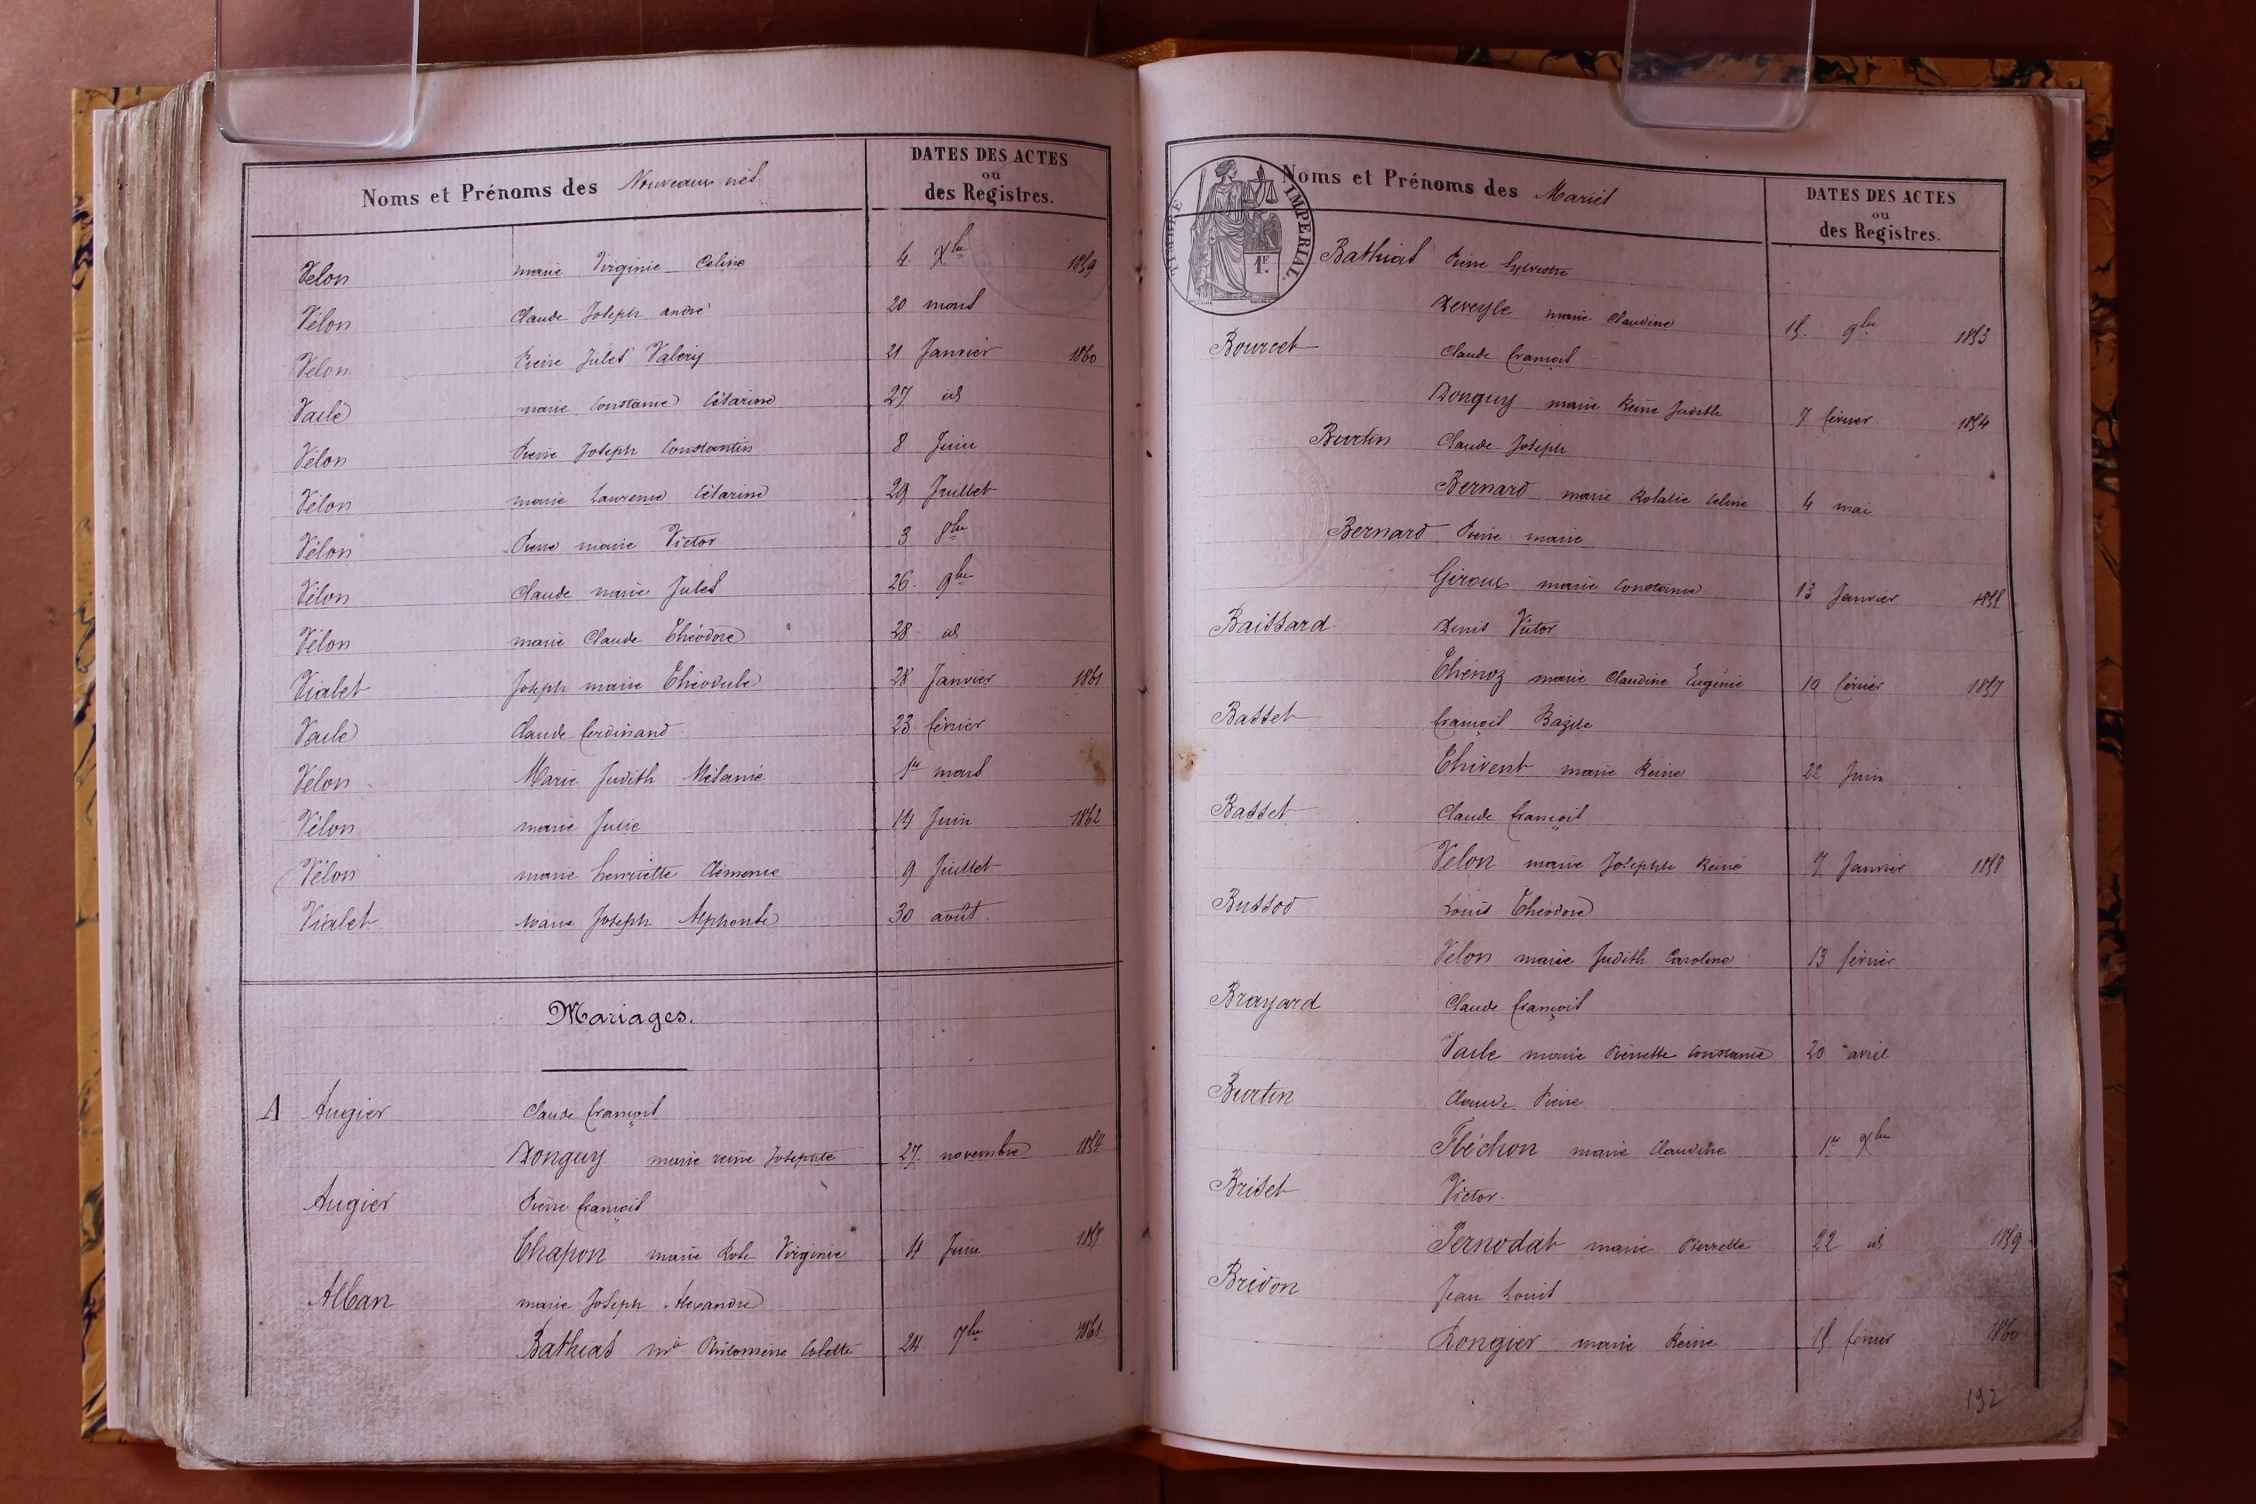 Noms et Prénoms des Nouveaux nés DATES DES ACTES
ou
des Registres.
Velon marie Virginie Celine 4 Xbre 1859
Vélon Claude Joseph andré 20 mars
Velon Pierre Jules Valery 21 Janvier 1860
Vacle marie Constance Césarine 27 id
Vélon Pierre Joseph Constantin 8 Juin
Vélon marie Laurence Césarine 29 Juillet
Vélon Pierre marie Victor 3 8bre
Vélon Claude marie Jules 26 9bre
Vélon marie Claude Théodore 28 id
Vialet Joseph marie Théodule 28 Janvier 1861
Vacle Claude ferdinand 23 février
Velon Marie Judith Mélanie 1er mars
Vélon marie Julie 19 Juin 1862
Vélon marie henriette Clémence 9 Juillet
Vialet Marie Joseph Alphonse 30 août
Mariages.
A Augier Claude françois
Donguy marie reine Josephte 27 novembre 1854
Augier Pierre françois
Chapon marie Rose Virginie 4 Juin
Alban marie Joseph Alexandre
Bathias mie Philomène Colette 24 7bre 1861
Noms et Prénoms des Mariés DATES DES ACTES
ou
des Registres.
TIMBRE IMPERIAL.
1F.
Bathias Pierre Sylvestre
Dereyle marie Claudine 9bre 1853
Bourcet Claude françois
Donguy marie Reine Judith 7 février 1854
Burtin Claude Joseph
Bernard marie Rosalie Celine 4 mai
Bernard Pierre marie
Giroux marie Constance 13 Janvier
Baissard Denis Victor
Thénoz marie Claudine Eugénie 19 février 1857
Basset françois Bazile
Thivent marie Reine 22 Juin
Basset Claude françois
Velon marie Josephte Reine 7 Janvier 1858
Bussod Louis Théodore
Velon marie Judith Caroline 13 février
Brayard Claude françois
Vacle marie Pierrette Constance 20 avril
Burtin Claude Pierre
Fléchon marie Claudine 1er Xbre
Briset Victor
Pernodat marie Pierrette 22 id 1859
Bridon Jean Louis
Rongier marie Reine 15 février 1860
192